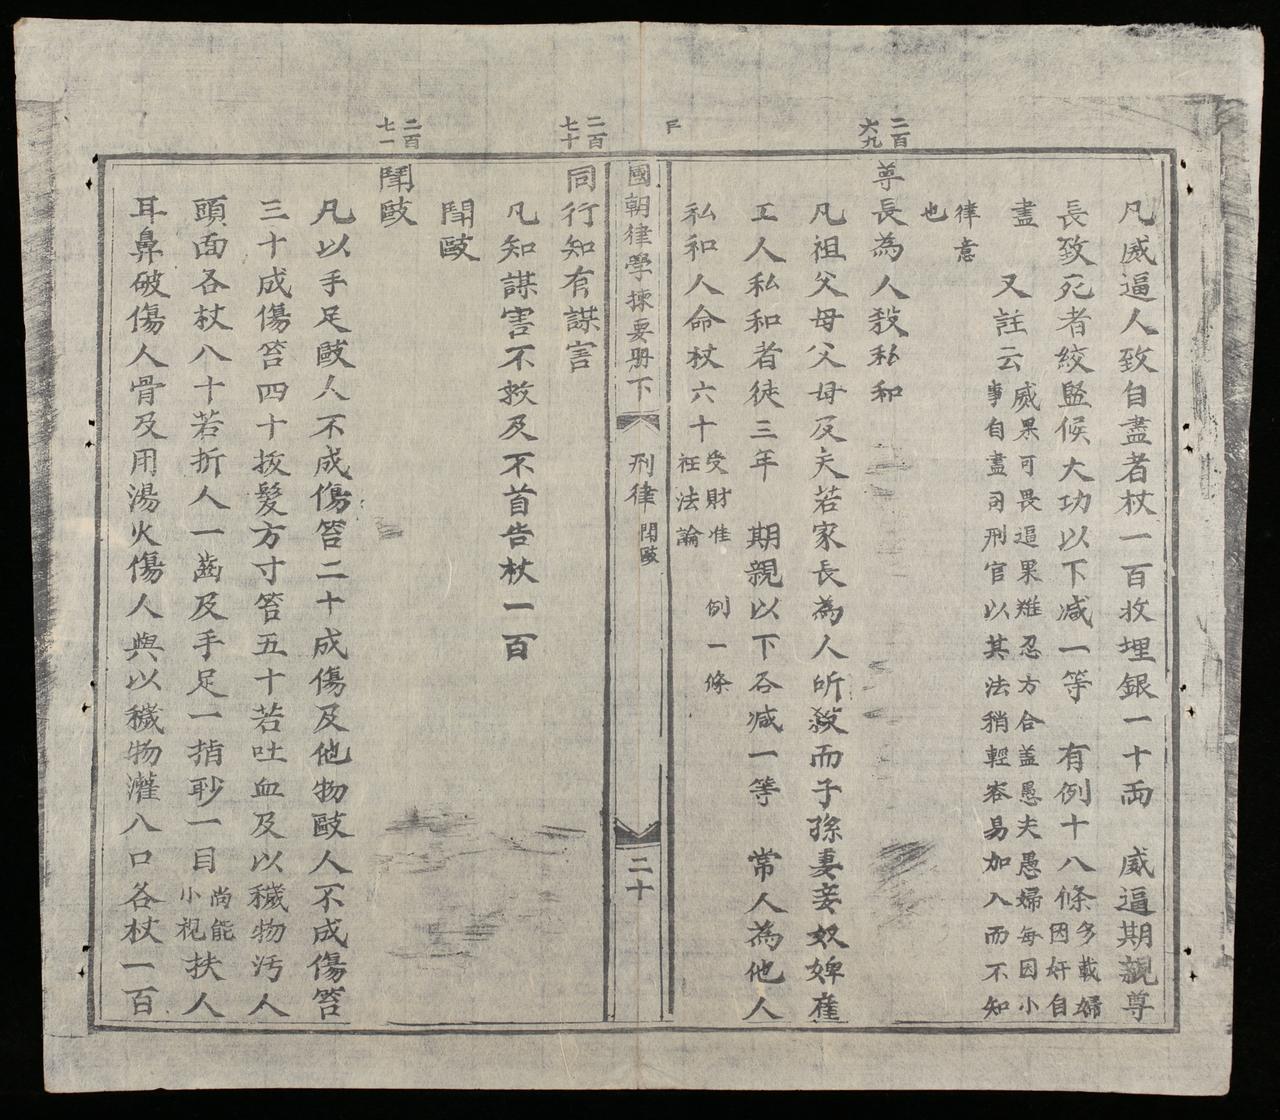 凡威逼人致自盡者杖一百收埋銀一十両　威逼期親尊
長致死者絞監候大功以下减一等　有例十八條多載婦因奸自
盡　又註云威果可畏逼果难忍方合盖愚夫愚婦每因小事自盡司刑官以其法稍輕容易加入而不知
律意也
二百六九
尊長為人殺私和
凡祖父母父母及夫若家長為人所殺而子孫妻妾奴婢雇
工人私和者徒三年　期親以下各减一等　常人為他人
私和人命杖六十受財准枉法論　例一條
國朝律學揀要册下　刑律　鬪毆　二十
二百七十
同行知有謀害
凡知謀害不救及不首告杖一百
鬪毆
二百七一
鬪毆
凡以手足毆人不成傷笞二十成傷及他物毆人不成傷笞
三十成傷笞四十拔髮方寸笞五十若吐血及以穢物汚人
頭面各杖八十若折人一齒及手足一指眇一目尚能小視抉人
耳鼻破傷人骨及用湯火傷人與以穢物灌入口各杖一百